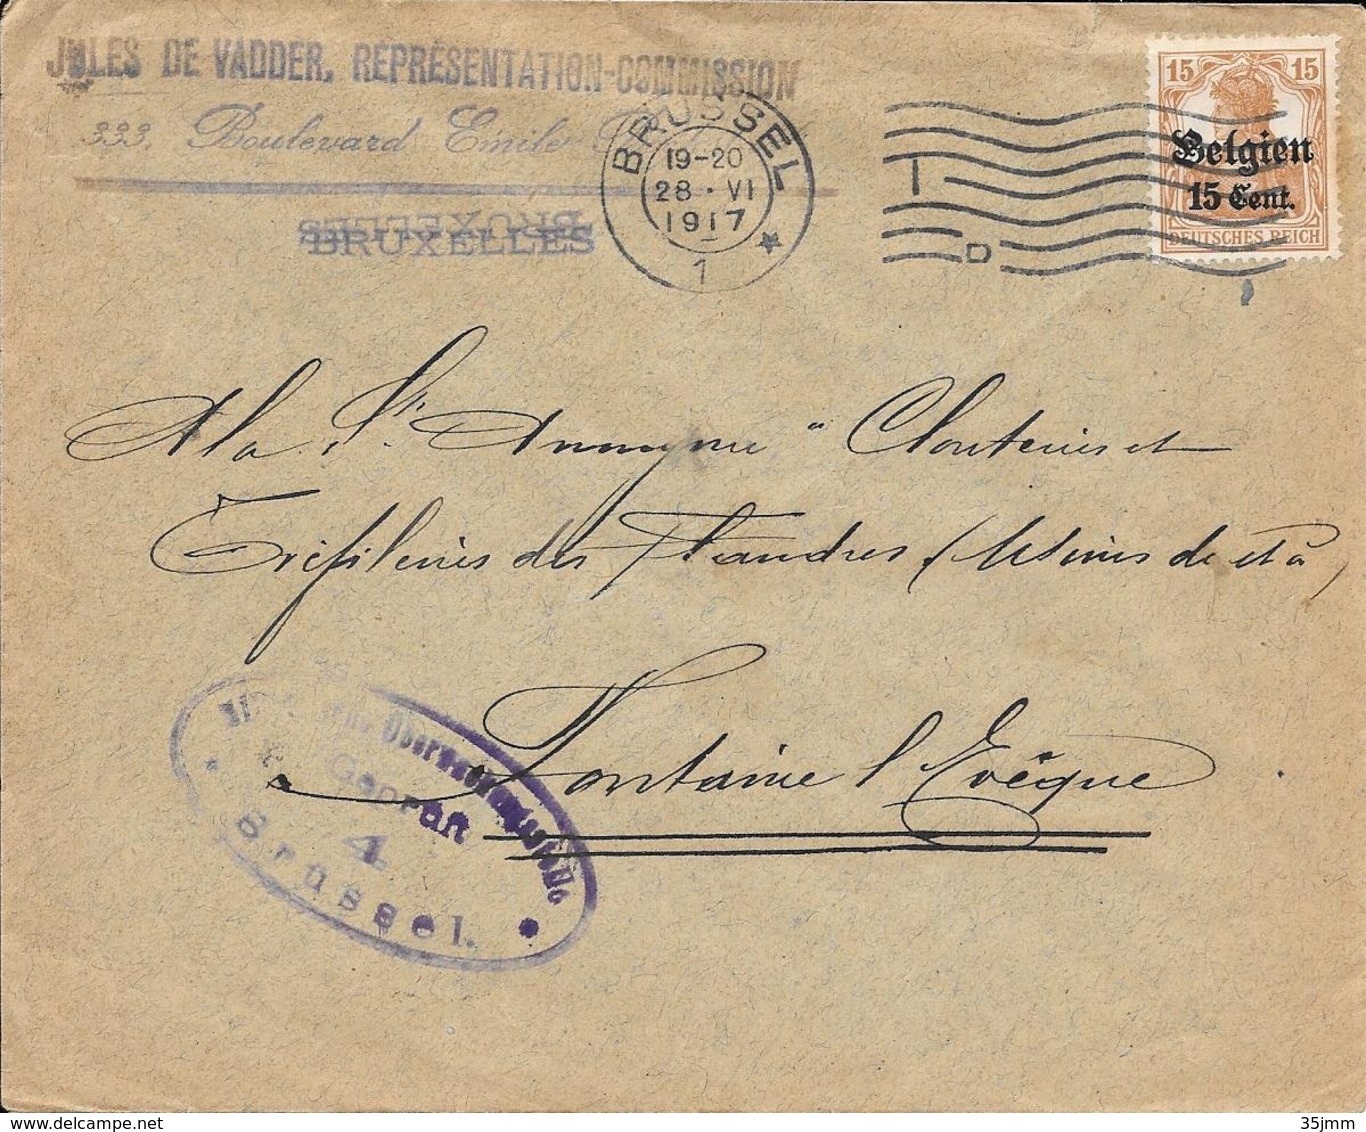 JULES DE VADDER, REPRÉSENTATION-COMMISSION
333, Boulevard Emile
BRUXELLES
BRUXELLES
BRÜSSEL
19-20
28 · VI
1917
1
15 15
Belgien
15 Cent.
DEUTSCHES REICH
A la Sté Anonyme " Clouteries et
Tréfileries des Flandres (Usines de et à)
Fontaine l'Evêque
Überwachungsstelle
Geprüft
4
Brüssel.
35jmm